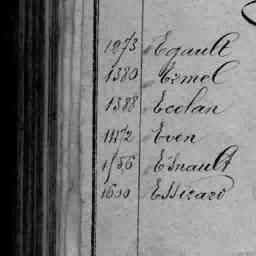 1273 Egault
1380 Ermel
1388 Ecolan
1472 Even
1586 Esnault
1600 Essirard